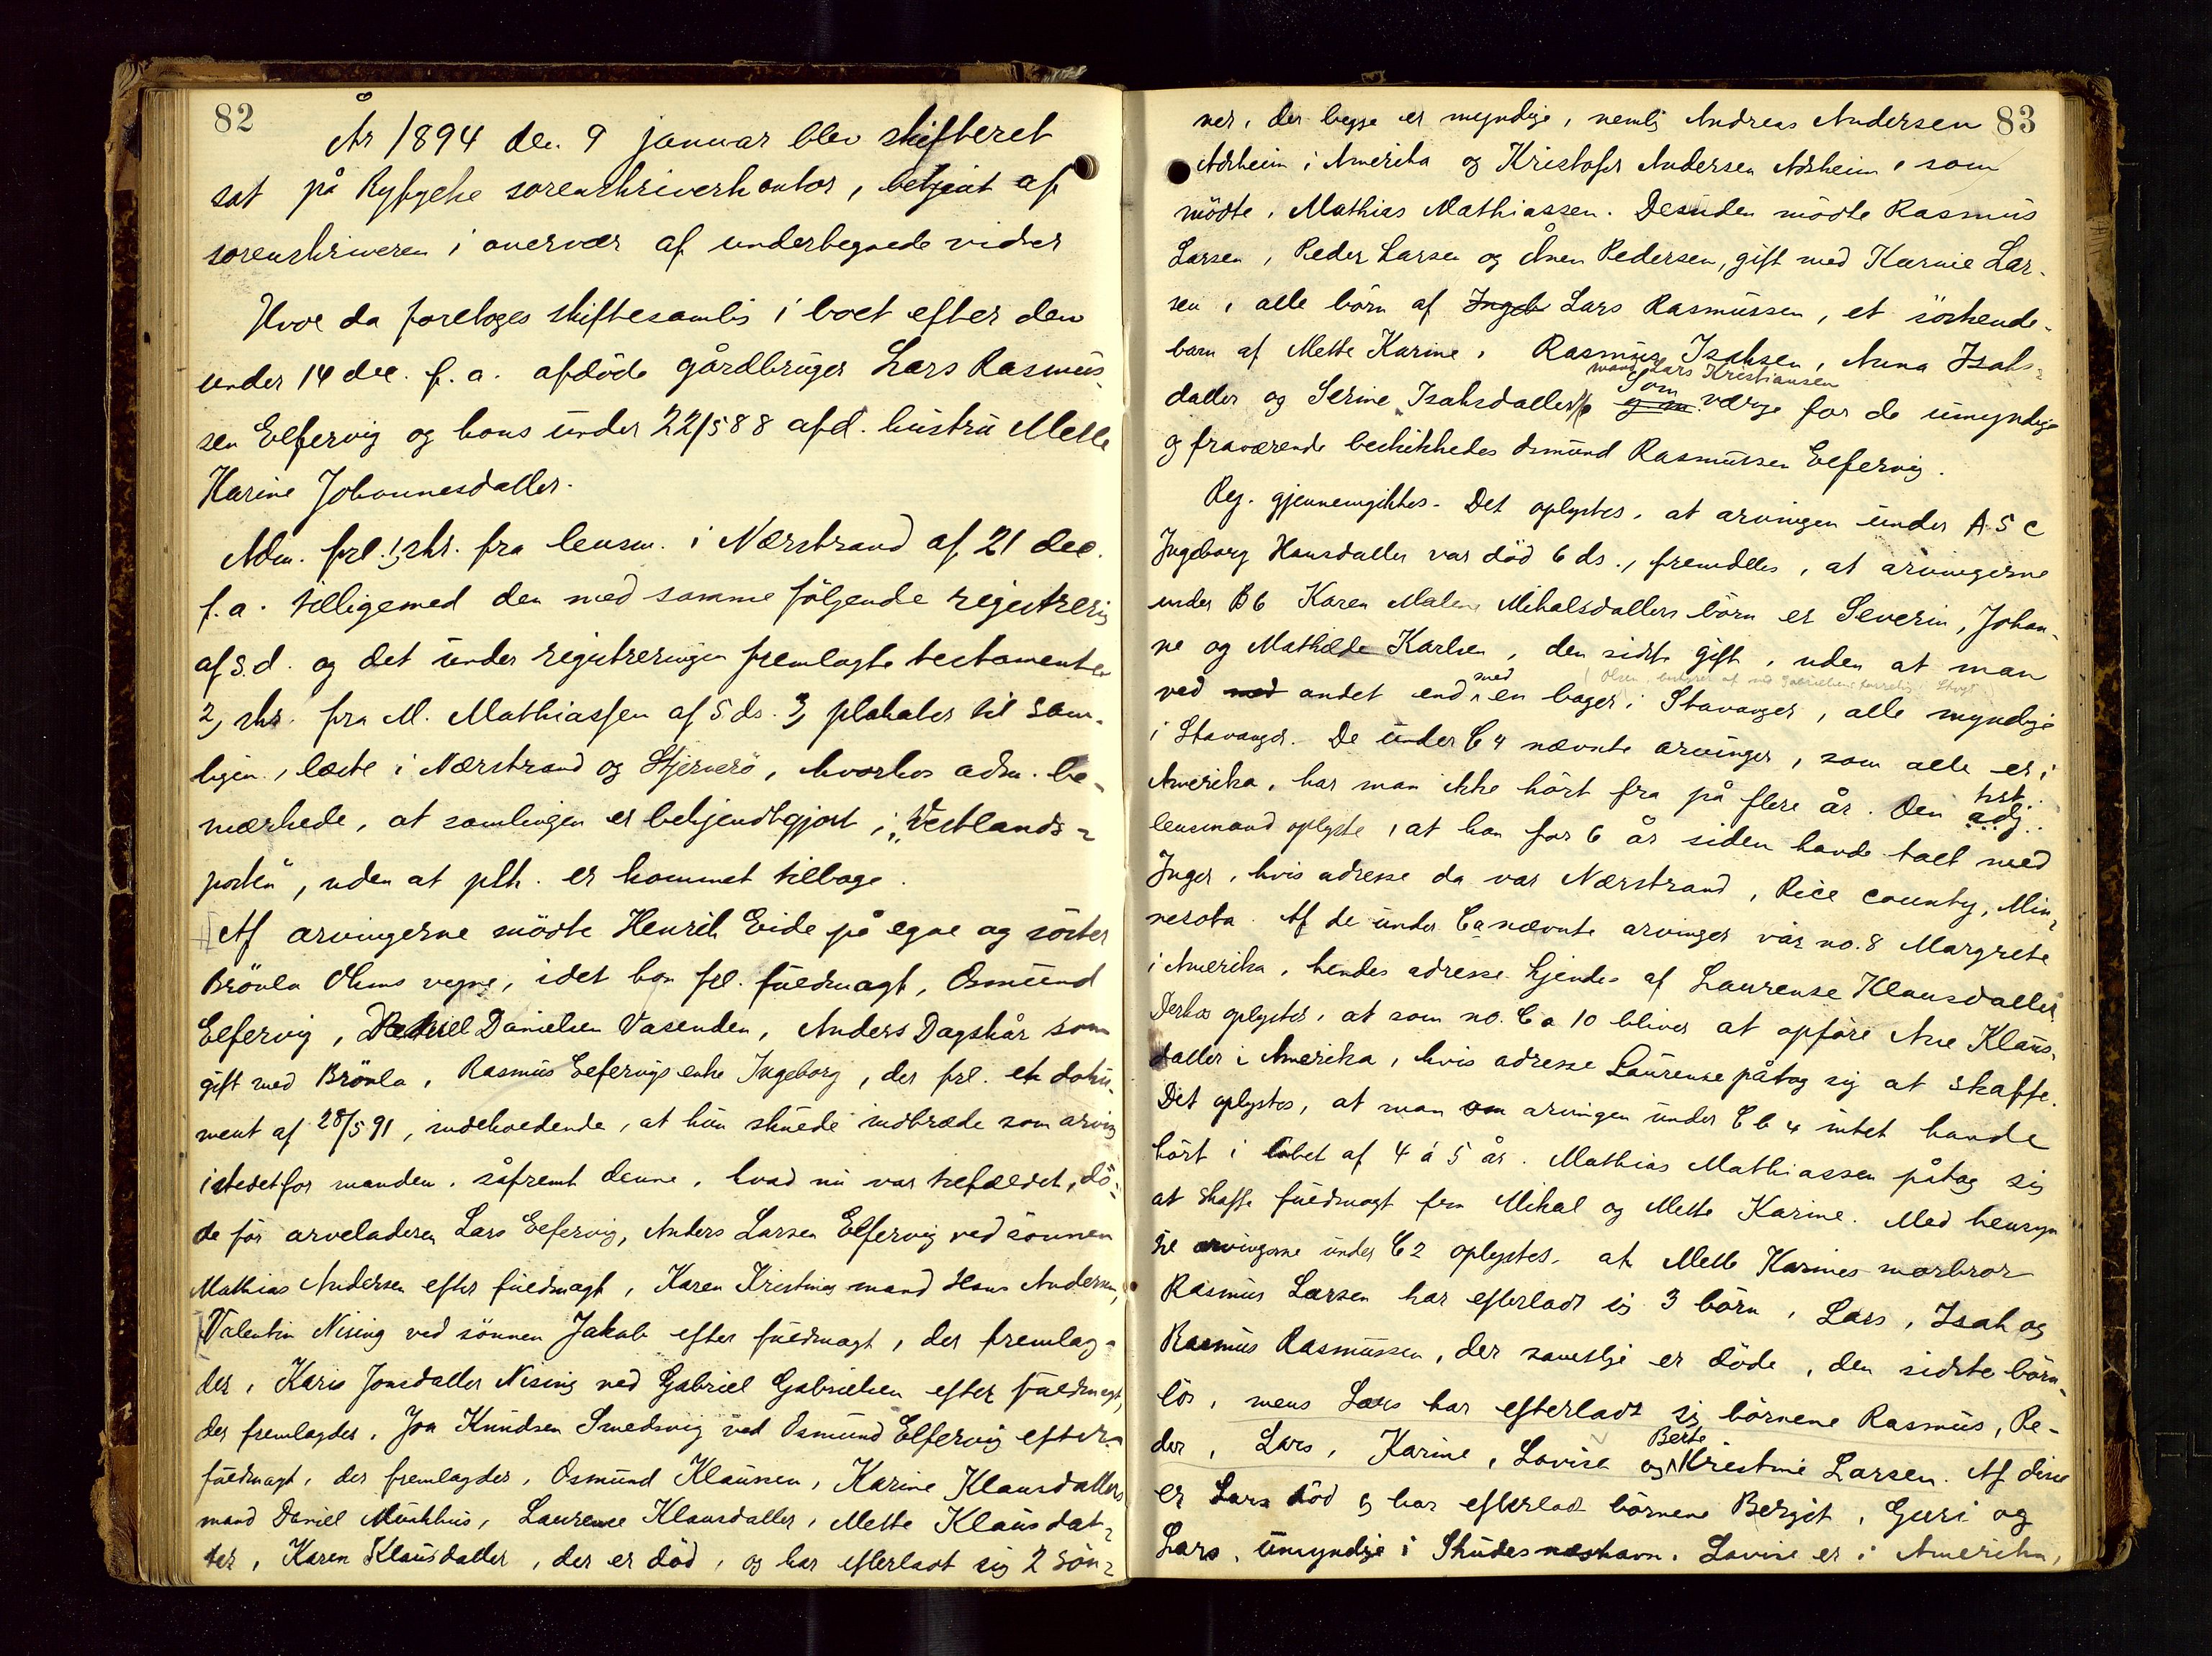 82
År 1894 den 9 januar blev skifteret
sat på Ryfylke sorenskriverkontor, betjent af
sorenskriveren i overvær af underbegnede vidner
Hvor da foretoges skiftesamling i boet efter den
under 14 dec. f. a. afdöde gårdbruger Lars Rasmus-
sen Elfervig og hans under 22/5 88 afd. hustru Mette
Karine Johannesdatter.
Adm. frl. 1, skr. fra lensm. i Nærstrand af 21 dec.
f. a. tilligemed den med samme følgende registrering
af s. d. og det under registreringen fremlagte testamente
2, skr. fra M. Mathiassen af 5 ds. 3, plakater til sam-
lingen, læste i Nærstrand og Stjernerö, hvorhos adm. be-
mærkede, at samlingen er bekjendtgjort i „Vestlands-
posten", uden at plk. er kommet tilbage.
Af arvingerne mödte Henrik Eide på egne og söster
Brönla Ohms vegne, idet han frl. fuldmagt, Osmund
Elfervig, Daniel Danielsen Vasenden, Anders Dagskår som
gift med Brönla, Rasmus Elfervigs enke Ingeborg, der frl. et doku-
ment af 28/5 91, indeholdende, at hun skulde indtræde som arving
istedetfor manden, såfremt denne, hvad nu var tilfældet, dö-
de för arveladeren Lars Elfervig, Anders Larsen Elfervig ved sönnen
Mathias Andersen efter fuldmagt, Karen Kristines mand Hans Andersen,
Valentin Nising ved sönnen Jakob efter fuldmagt, der fremlag-
des, Karis Jonsdatter Nising ved Gabriel Gabrielsen efter fuldmagt,
der fremlagdes, Jon Knudsen Smedsvig ved Osmund Elfervig efter
fuldmagt, der fremlagdes, Osmund Klausen, Karine Klausdatters
mand Daniel Munkhus, Laurense Klausdatter, Mette Klausdat-
ter, Karen Klausdatter, der er död, og har efterladt sig 2 sön-
83
ner, der begge er myndige, nemlig Andreas Andersen
Askheim i Amerika og Kristofer Andersen Askheim, som
mödte, Mathias Mathiassen. Desuden mödte Rasmus
Larsen, Peder Larsen og Ånen Pedersen, gift med Karine Lar-
sen, alle börn af Ingeb Lars Rasmussen, et söskende-
barn af Mette Karine, Rasmus Isaksen, Anna Isaks-
mand Lars Kristiansen
datter og Serine Isaksdatters Som værge for de umyndige
og fraværende beskikkedes Osmund Rasmussen Elfervig.
Reg. gjennemgikkes. Det oplystes, at arvingen under A 5 c
Ingeborg Hansdatter var död 6 ds., fremdeles, at arvingerne
under B 6 Karen Malene Mikalsdatters börn er Severin, Johan-
ne og Mathilde Karlsen, den sidste gift, uden at man
ved med andet end med en bager i Stavanger, alle myndige
i Stavanger. De under C 4 nævnte arvinger, som alle er i
Amerika, har man ikke hört fra på flere år. Den tilst. adj.
lensmand oplyste, at han for 6 år siden havde talt med
Inger, hvis adresse da var Nærstrand, Rice county, Min-
nesota. Af de under Ca nævnte arvinger var no. 8 Margrete
i Amerika, hendes adresse kjendes af Laurense Klausdatter
Derhos oplystes, at som no. C a 10 bliver at opföre Ane Klaus-
datter i Amerika, hvis adresse Laurense påtog sig at skaffe.
Det oplystes, at man om arvingen under C b 4 intet havde
hört i löbet af 4 á 5 år. Mathias Mathiassen påtog sig
at skaffe fuldmagt fra Mikal og Mette Karine. Med hensyn
til arvingerne under C 2 oplystes, at Mette Karines morbror
Rasmus Larsen har efterladt sig 3 börn, Lars, Isak og
Rasmus Rasmussen, der samtlige er döde, den sidste börn-
lös, mens Lars har efterladt sig börnene Rasmus, Pe-
der, Lars, Karine, Lovise og Berte Kristine Larsen. Af disse
er Lars död og har efterladt börnene Bergit, Guri og
Lars, umyndige i Skudesneshavn. Lovise er i Amerika,